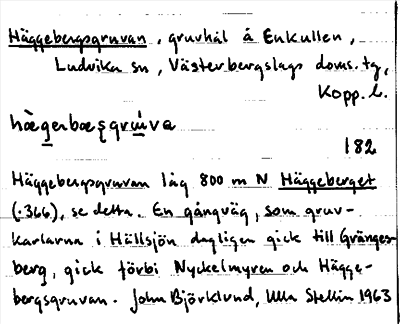 Häggebergsgruvan, gruvhål å Enkullen,
Ludvika sn, Västerbergslags doms. tg,
Kopp. l.
182
Häggebergsgruvan låg 800 m N Häggeberget
(·366), se detta. En gångväg, som gruv-
karlarna i Hällsjön dagligen gick till Gränges-
berg, gick förbi Nyckelmyren och Hägge-
bergsgruvan. John Björklund, Ulla Stellin 1963